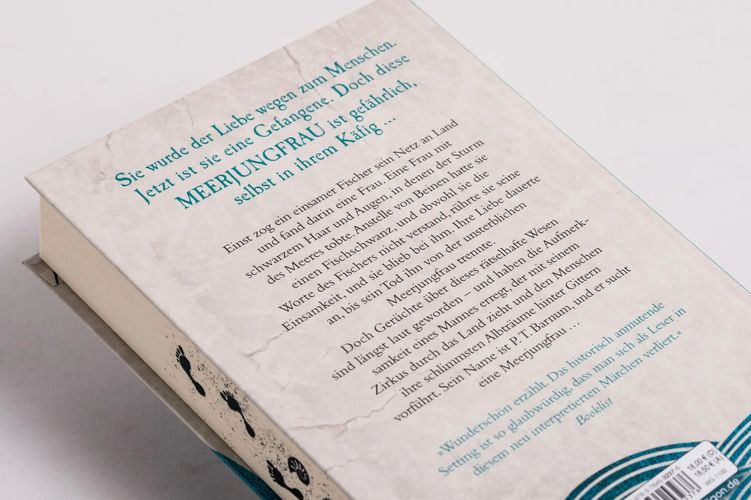 Sie wurde der Liebe wegen zum Menschen.
Jetzt ist sie eine Gefangene. Doch diese
MEERJUNGFRAU ist gefährlich,
selbst in ihrem Käfig ...
Einst zog ein einsamer Fischer sein Netz an Land
und fand darin eine Frau. Eine Frau mit
schwarzem Haar und Augen, in denen der Sturm
des Meeres tobte. Anstelle von Beinen hatte sie
einen Fischschwanz, und obwohl sie die
Worte des Fischers nicht verstand, rührte sie seine
Einsamkeit, und sie blieb bei ihm. Ihre Liebe dauerte
an, bis sein Tod ihn von der unsterblichen
Meerjungfrau trennte.
Doch Gerüchte über dieses rätselhafte Wesen
sind längst laut geworden – und haben die Aufmerk-
samkeit eines Mannes erregt, der mit seinem
Zirkus durch das Land zieht und den Menschen
ihre schlimmsten Albträume hinter Gittern
vorführt. Sein Name ist P. T. Barnum, und er sucht
eine Meerjungfrau ...
»Wunderschön erzählt. Das historisch anmutende
Setting ist so glaubwürdig, dass man sich als Leser in
diesem neu interpretierten Märchen verliert.«
Booklist
18,00 € (D)
18,50 € (A)